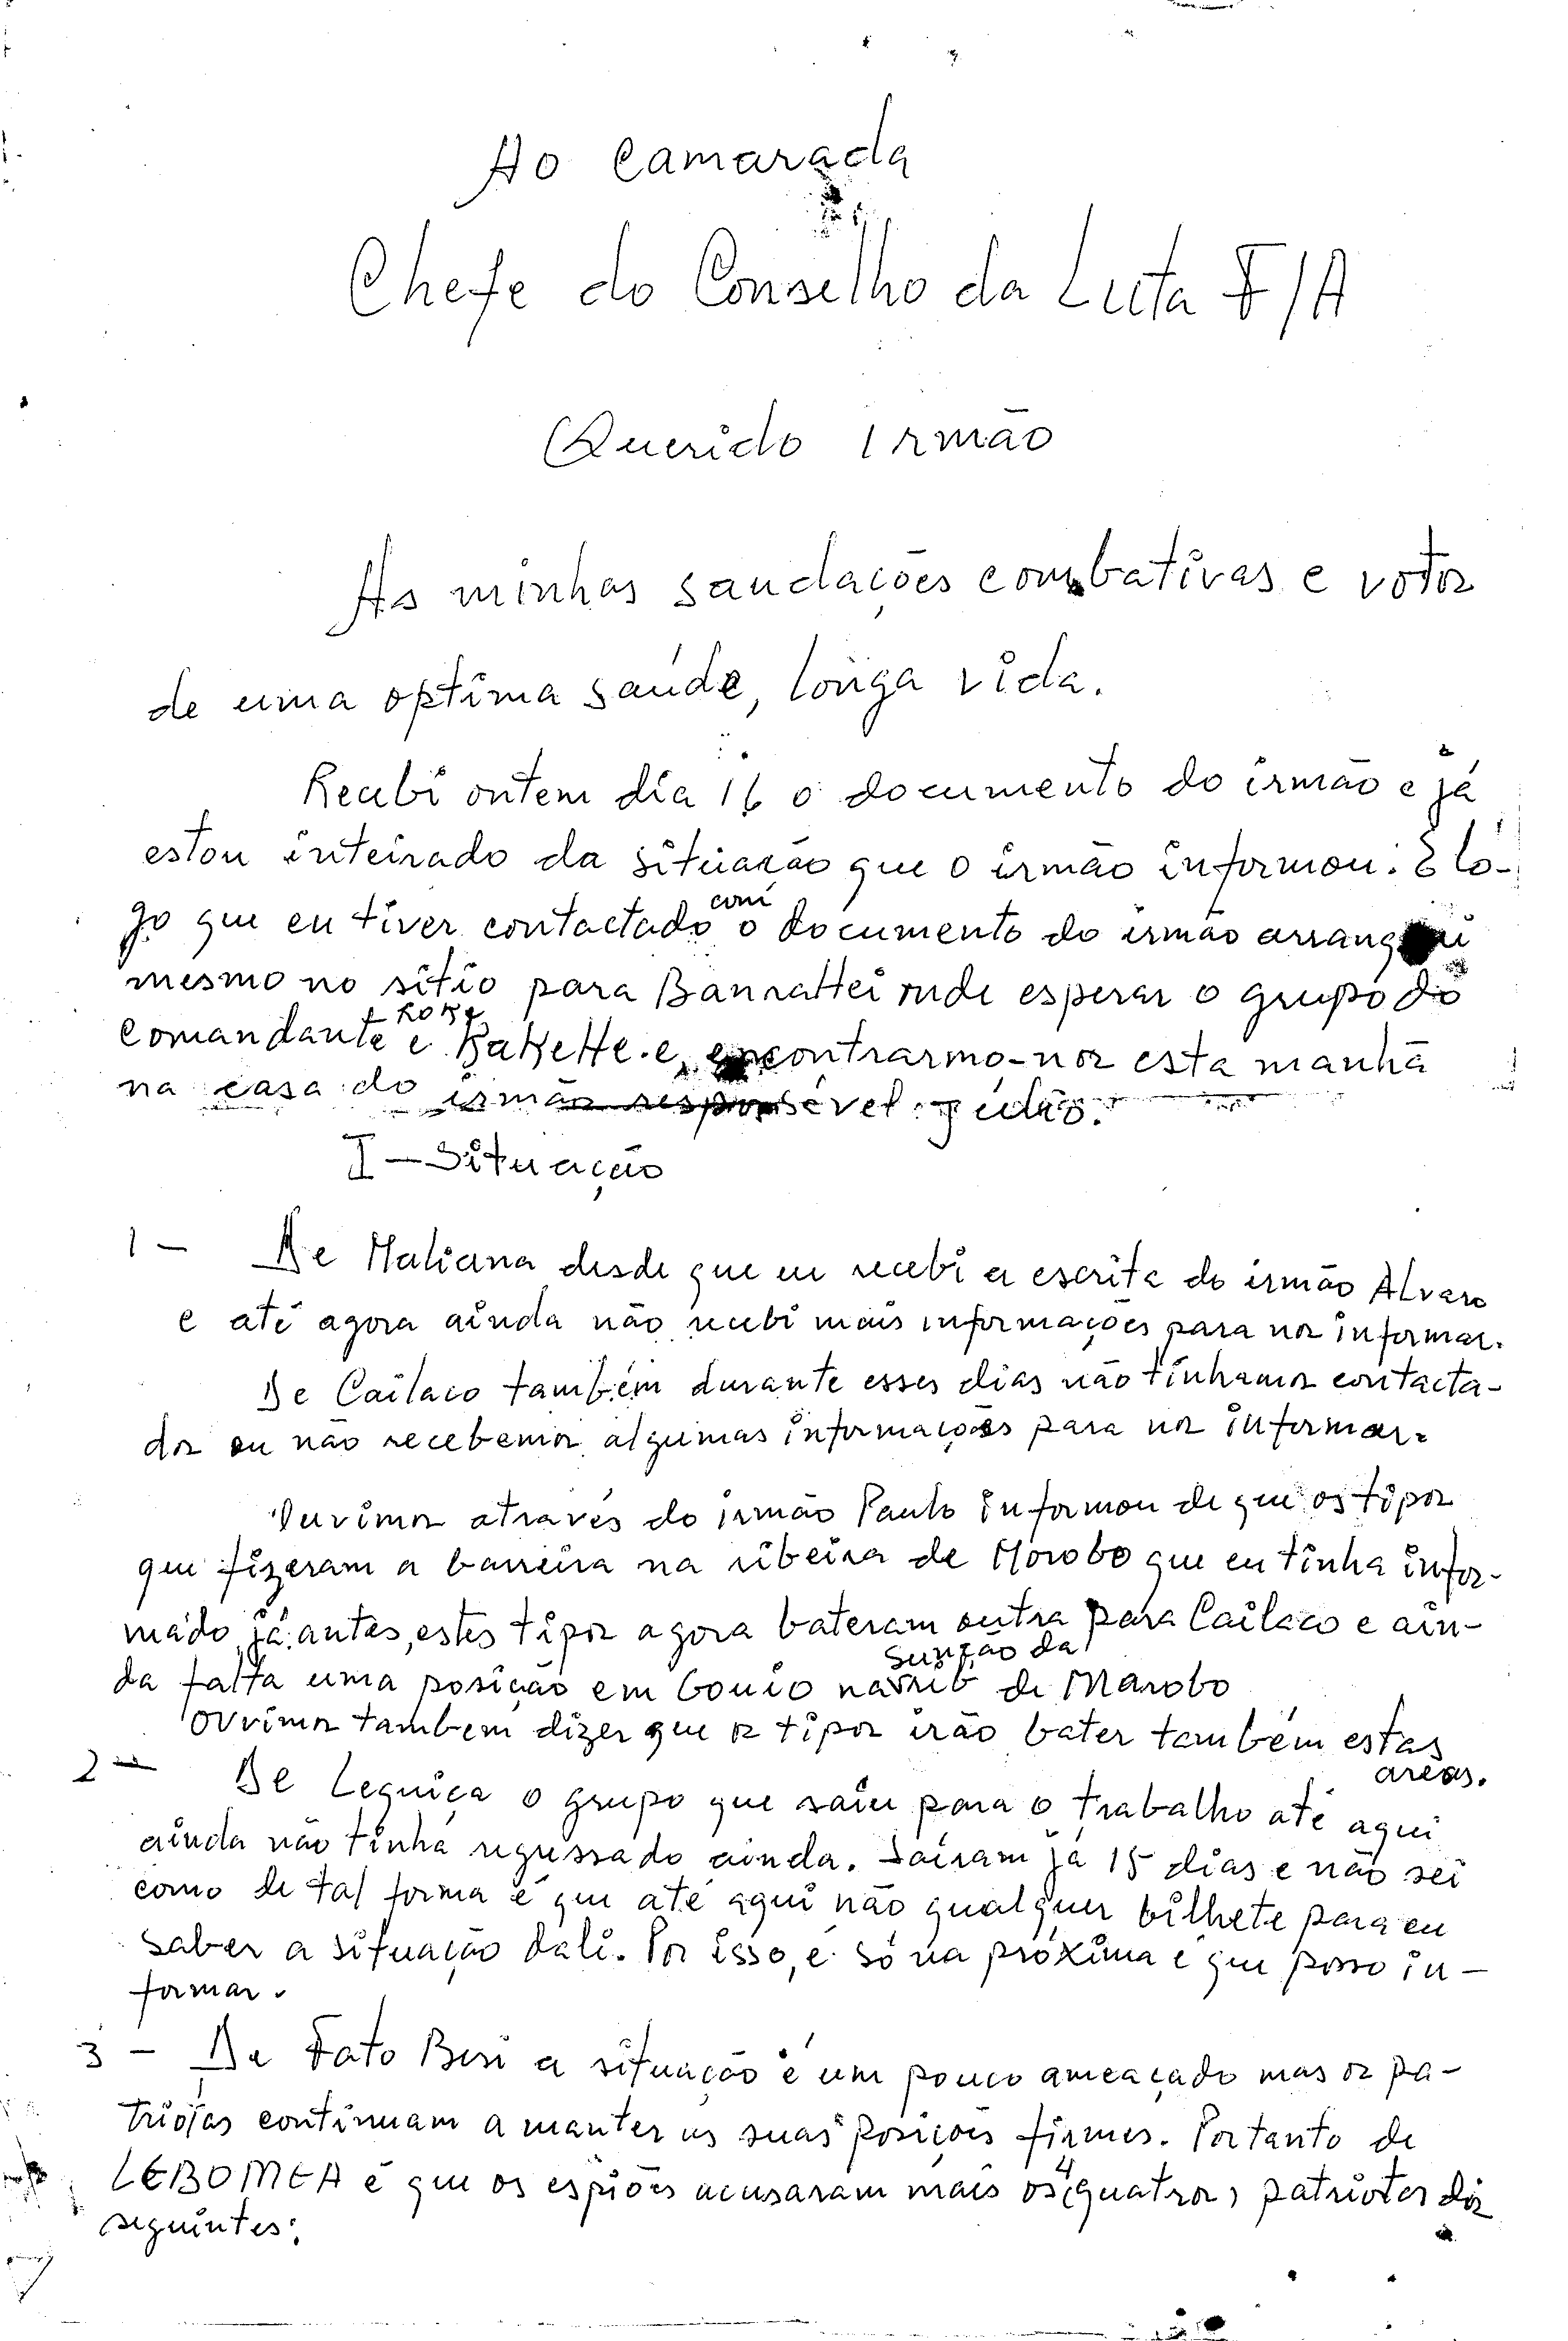 Ao Camarada
Chefe do Conselho da Luta F/A
Querido irmão
As minhas saudações combativas e votos
de uma optima saúde, longa vida.
Recebi ontem dia 16 o documento do irmão e já
estou inteirado da situação que o irmão informou. E lo-
go que eu tiver contactado com o documento do irmão
mesmo no sitio para esperar o grupo do
comandante e Loke e KaKeHe e encontrarmo-nos esta manhã
na casa do irmão
I - Situação
1 - De Maliana desde que eu recebi a escrita do irmão Alvaro
e até agora ainda não recebi mais informações para nos informar.
De Cailaco também durante esses dias não tinhamos contacta-
dos ou não recebemos algumas informações para nos informar.
Ouvimos através do irmão Paulo informou de que os tipos
que fizeram a barreira na ribeira de Morobo que eu tinha infor-
mado já antes, estes tipos agora bateram outra para Cailaco e ain-
da falta uma posição em junção da rib de Marobo
Ouvimos também dizer que os tipos irão bater também estas
areas.
2 - De Lequiça o grupo que saiu para o trabalho até aqui
ainda não tinha regressado ainda. Sairam já 15 dias e não sei
como de tal forma é que até aqui não qualquer bilhete para eu
saber a situação dali. Por isso, é só na próxima é que posso in-
formar.
3 - De Fato Besi a situação é um pouco ameaçado mas os pa-
triotas continuam a manter as suas posições firmes. Portanto de
LEBOMEA é que os espiões acusaram mais os 4 (quatro) patriotas dos
seguintes: